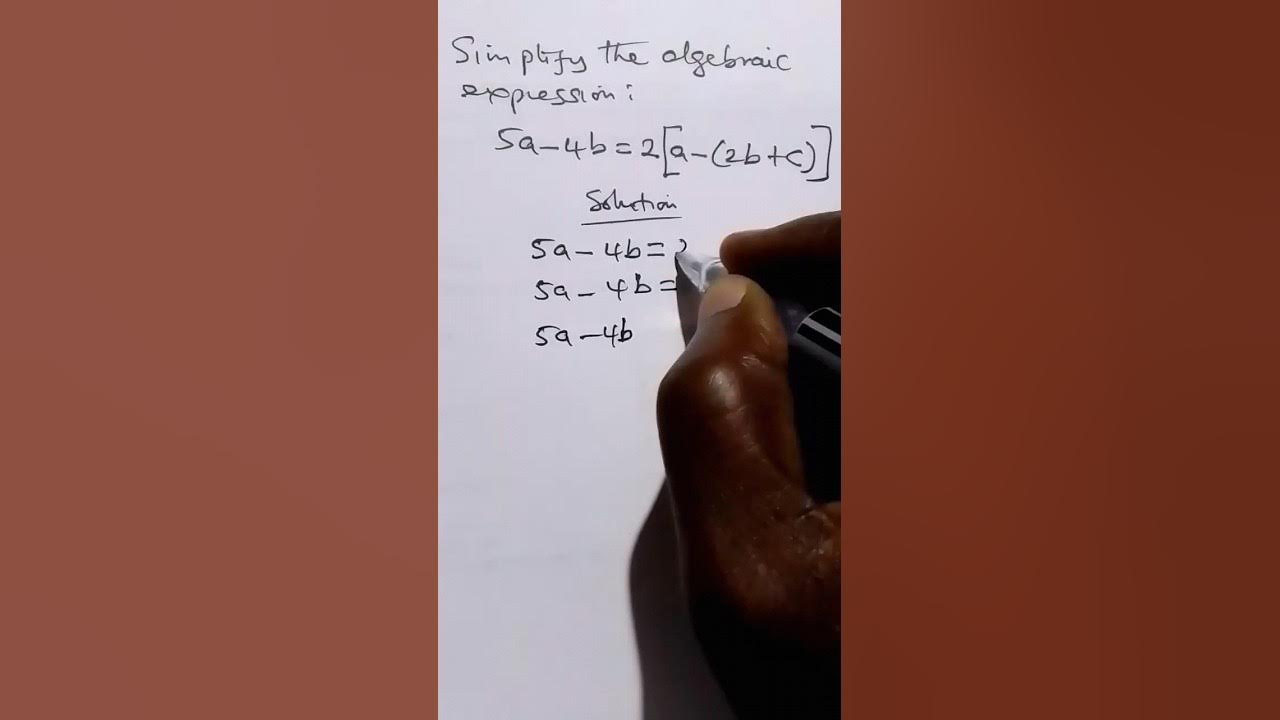 Simplify the algebraic
expression:
5a-4b=2[a-(2b+c)]
Solution
5a-4b=2
5a-4b=
5a-4b